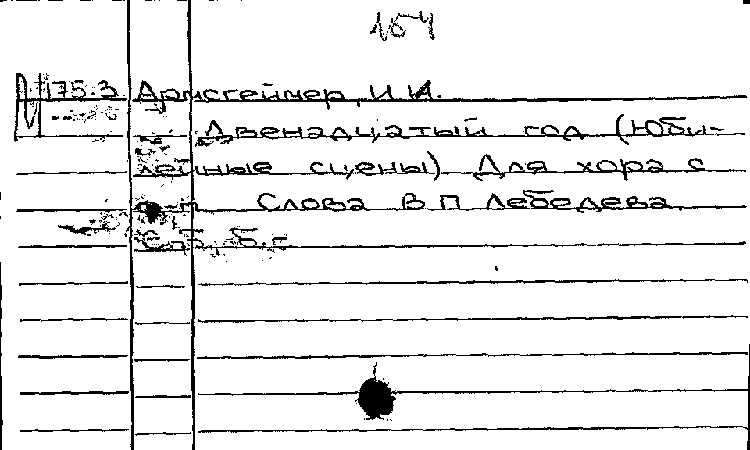 154
175.3 Армсгеймер, И.И.
Двенадцатый год (Юби-
лейные сцены) Для хора с
Слова В П Лебедева.
С.п.б., б.г.